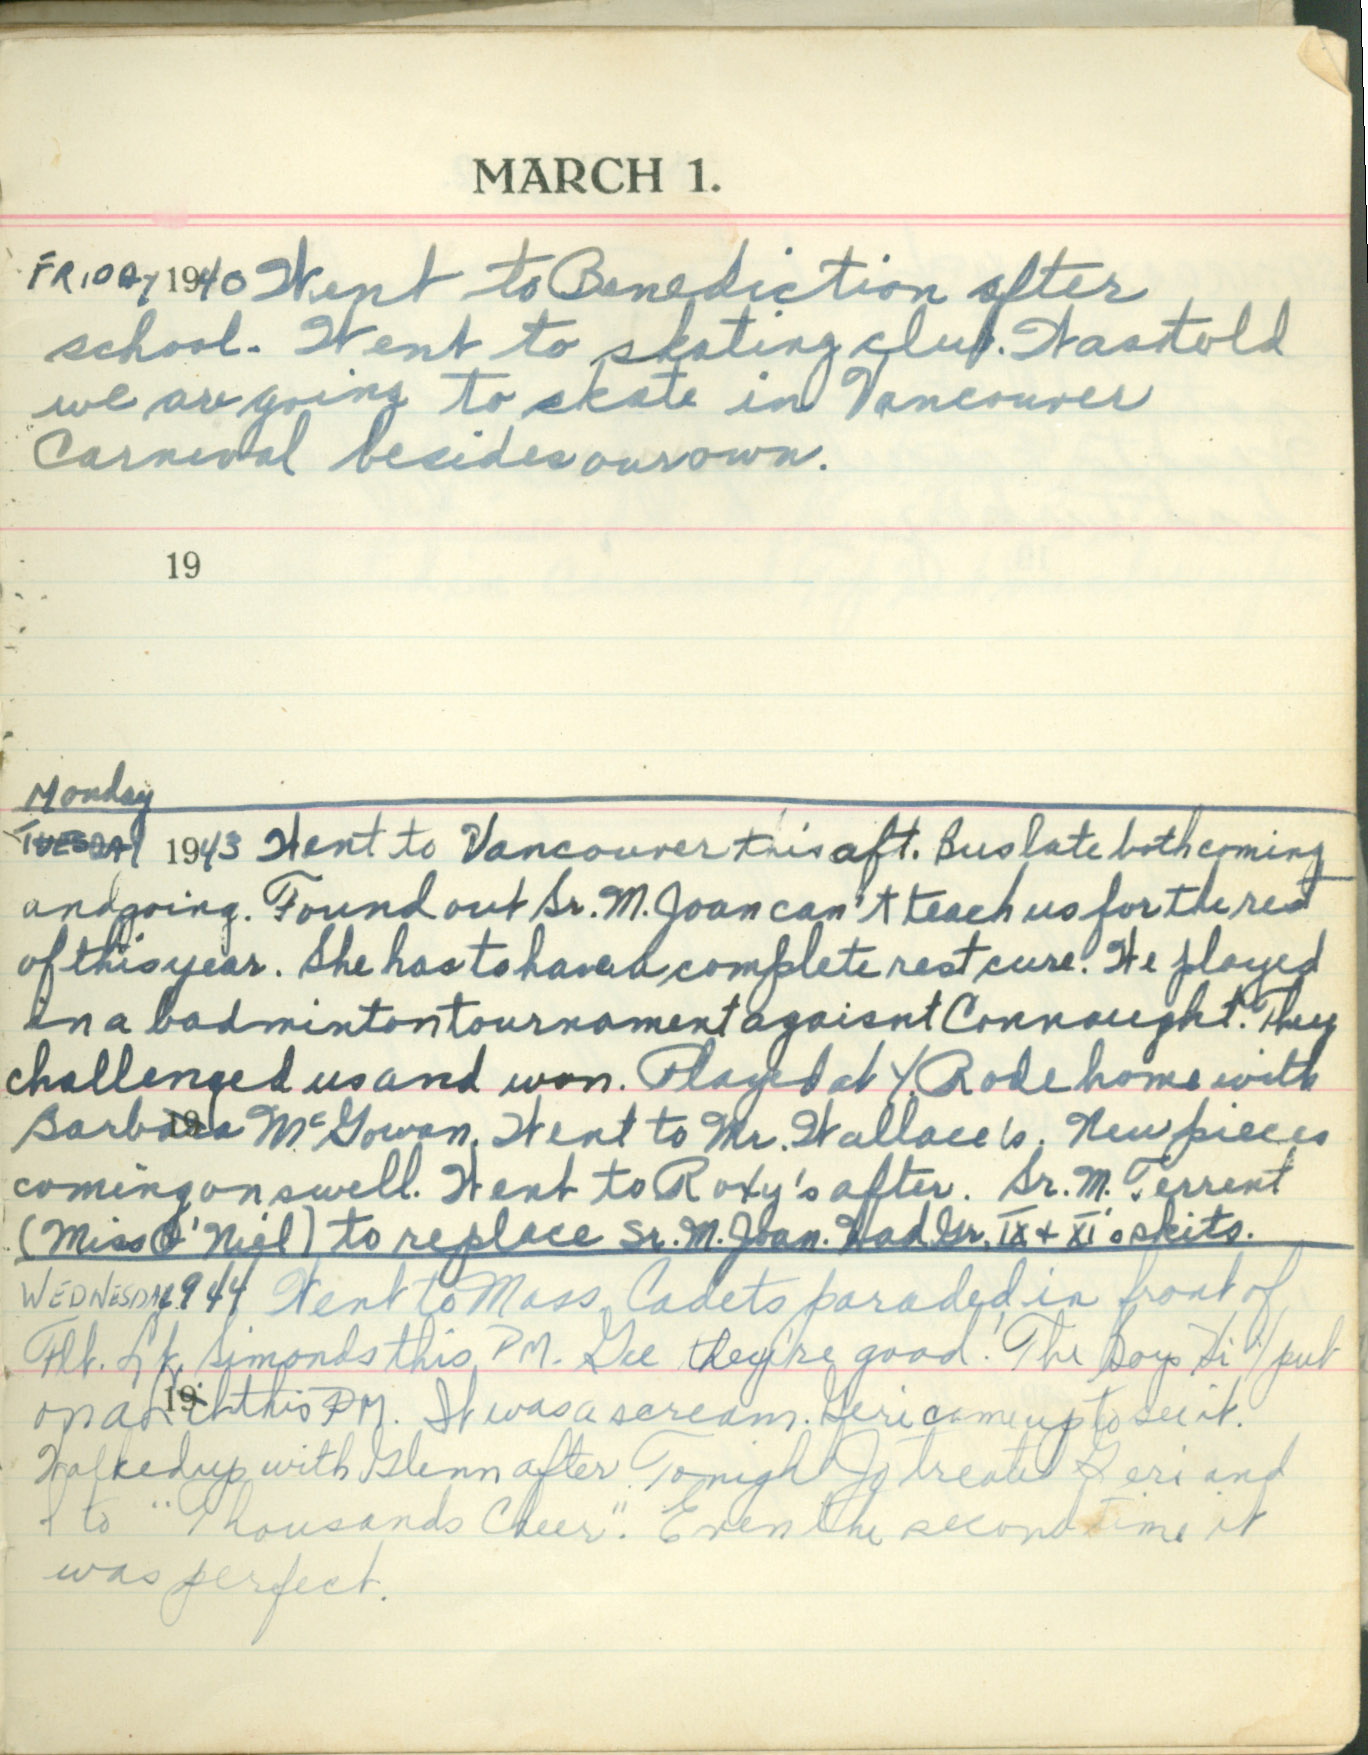 MARCH 1.
FRIDAY 1940 Went to Benediction after
school. Went to skating club. Was told
we are going to skate in Vancouver
Carnival besides our own.
19
Monday
TUESDAY 1943 Went to Vancouver this aft. Bus late both coming
and going. Found out Sr. M. Joan can't teach us for the rest
of this year. She has to have a complete rest cure. We played
in a badminton tournament agaisnt Connaught. They
challenged us and won. Played at Y. Rode home with
Barbara McGowan. Went to Mr. Wallace's. New pieces
coming on swell. Went to Roxy's after. Sr. M. Terrent
(Miss O'Niel) to replace Sr. M. Joan. Had Gr. IX + XI's skits.
WEDNESDAY 1944 Went to Mass. Cadets paraded in front of
Flt. Lt. Simonds this P.M. Gee they're good! The Boys Hi Y put
on a this P.M. It was a scream. Geri came up to see it.
Walked up with Glenn after. Tonight Jo treated Geri and
I to "Thousands Cheer". Even the second time it
was perfect.